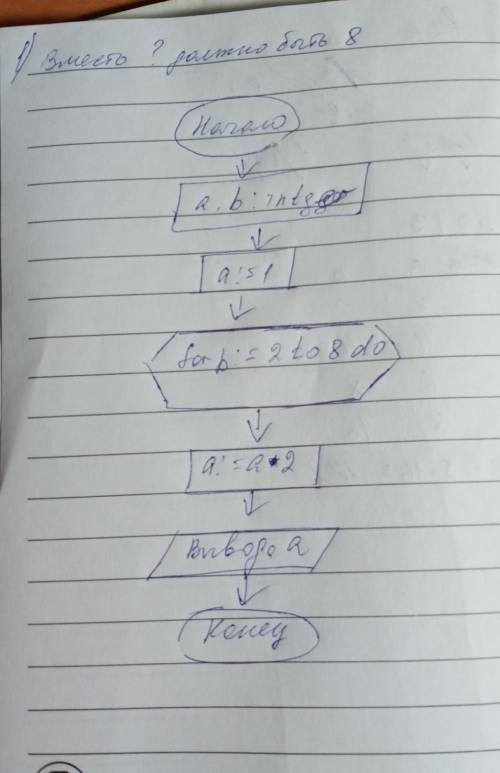 1) Вместь ? должно быть 8
Начало
a, b : integer
a:=1
for b:= 2 to 8 do
a:=a*2
Вывод a
Конец